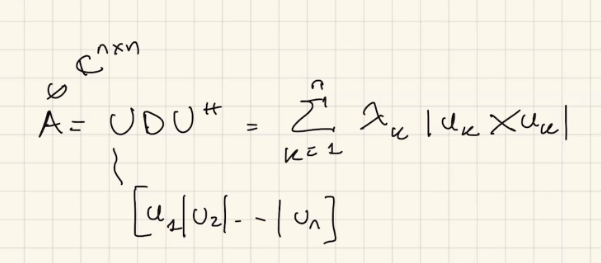 ℂ^{n×n}
A = U D U^H = \sum_{k=1}^{n} λ_k |u_k⟩⟨u_k|
[u_1|u_2|--|u_n]